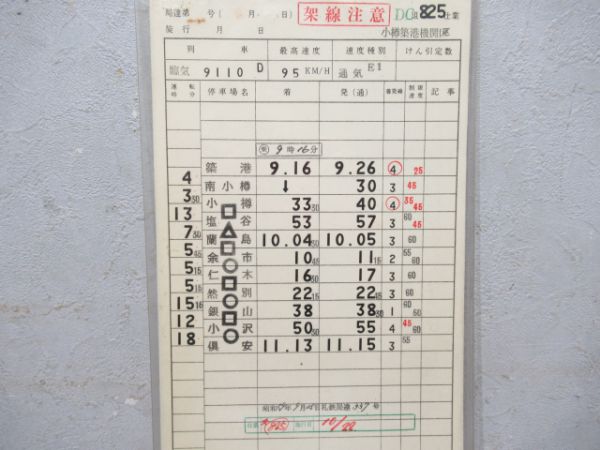 局達第 号( 月 日) 架線注意 DC 825 仕業
施行 月 日 小樽築港機関区
列車 最高速度 速度種別 けん引定数
臨気 9110D 95 KM/H 通気E1
運転時分 停車場名 着 発(通) 着発線 制限速度 記事
9時16分
築港 9.16 9.26 4 25
4
南小樽 ↓ 30 3 45
3 30
小樽 33 30 40 4 35 45
13
塩谷 53 57 3 60 45
7 30
蘭島 10.04 30 10.05 3 60
5 45
余市 10 45 11 15 2 55 60
5 15
仁木 16 30 17 3 60
5 15
然別 22 15 22 15 3 60
15 15
銀山 38 38 30 1 60
12
小沢 50 30 55 4 45 60
18
倶安 11.13 11.15 3 55
10/22